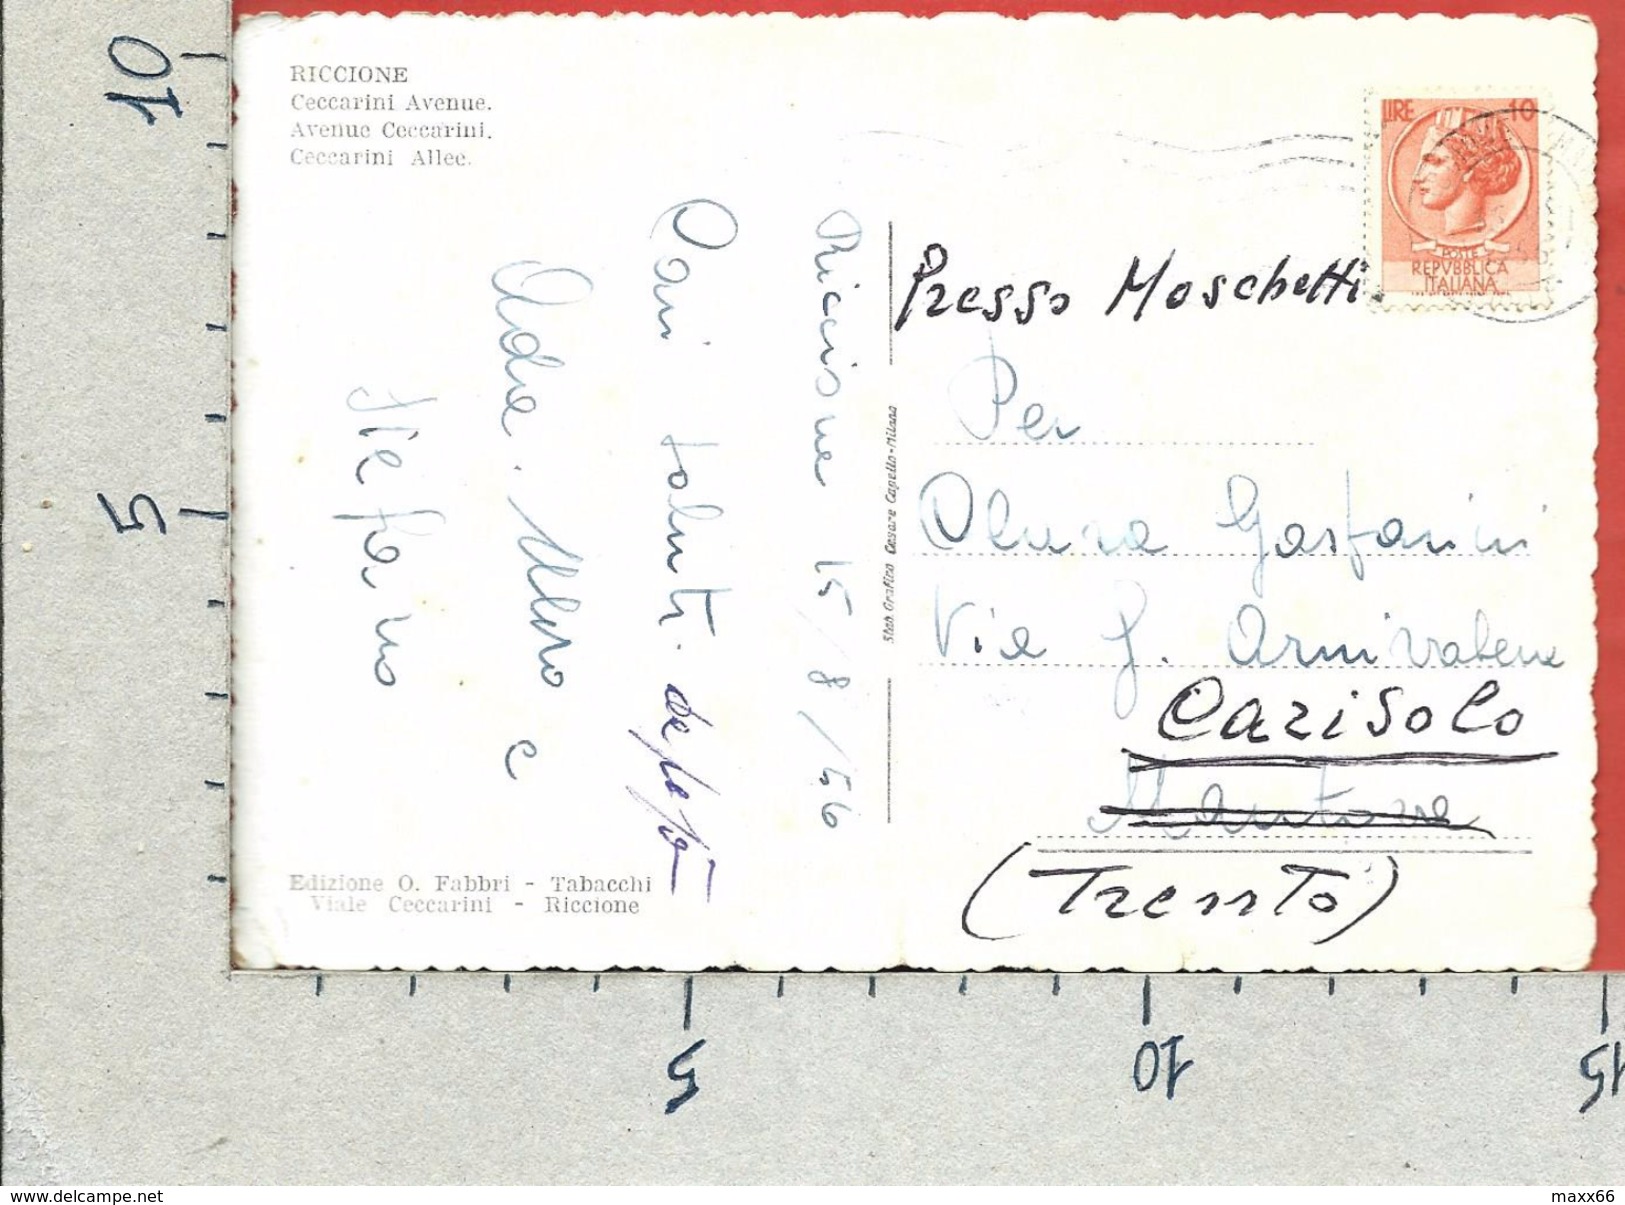 RICCIONE
Ceccarini Avenue.
Avenue Ceccarini.
Ceccarini Allee.
Riccione 15/8/56
Cari saluti.
Adra. Mero e
Stefano
Edizione O. Fabbri - Tabacchi
Viale Ceccarini - Riccione
Stab. Grafico Cesare Capello-Milano
LIRE 10
POSTE
REPVBBLICA
ITALIANA
Presso Moschetti
Per
Gasfarini
Via G. Arrivabene
Carisolo
Mantova
(Trento)
10
5
5
10
15
www.delcampe.net
maxx66